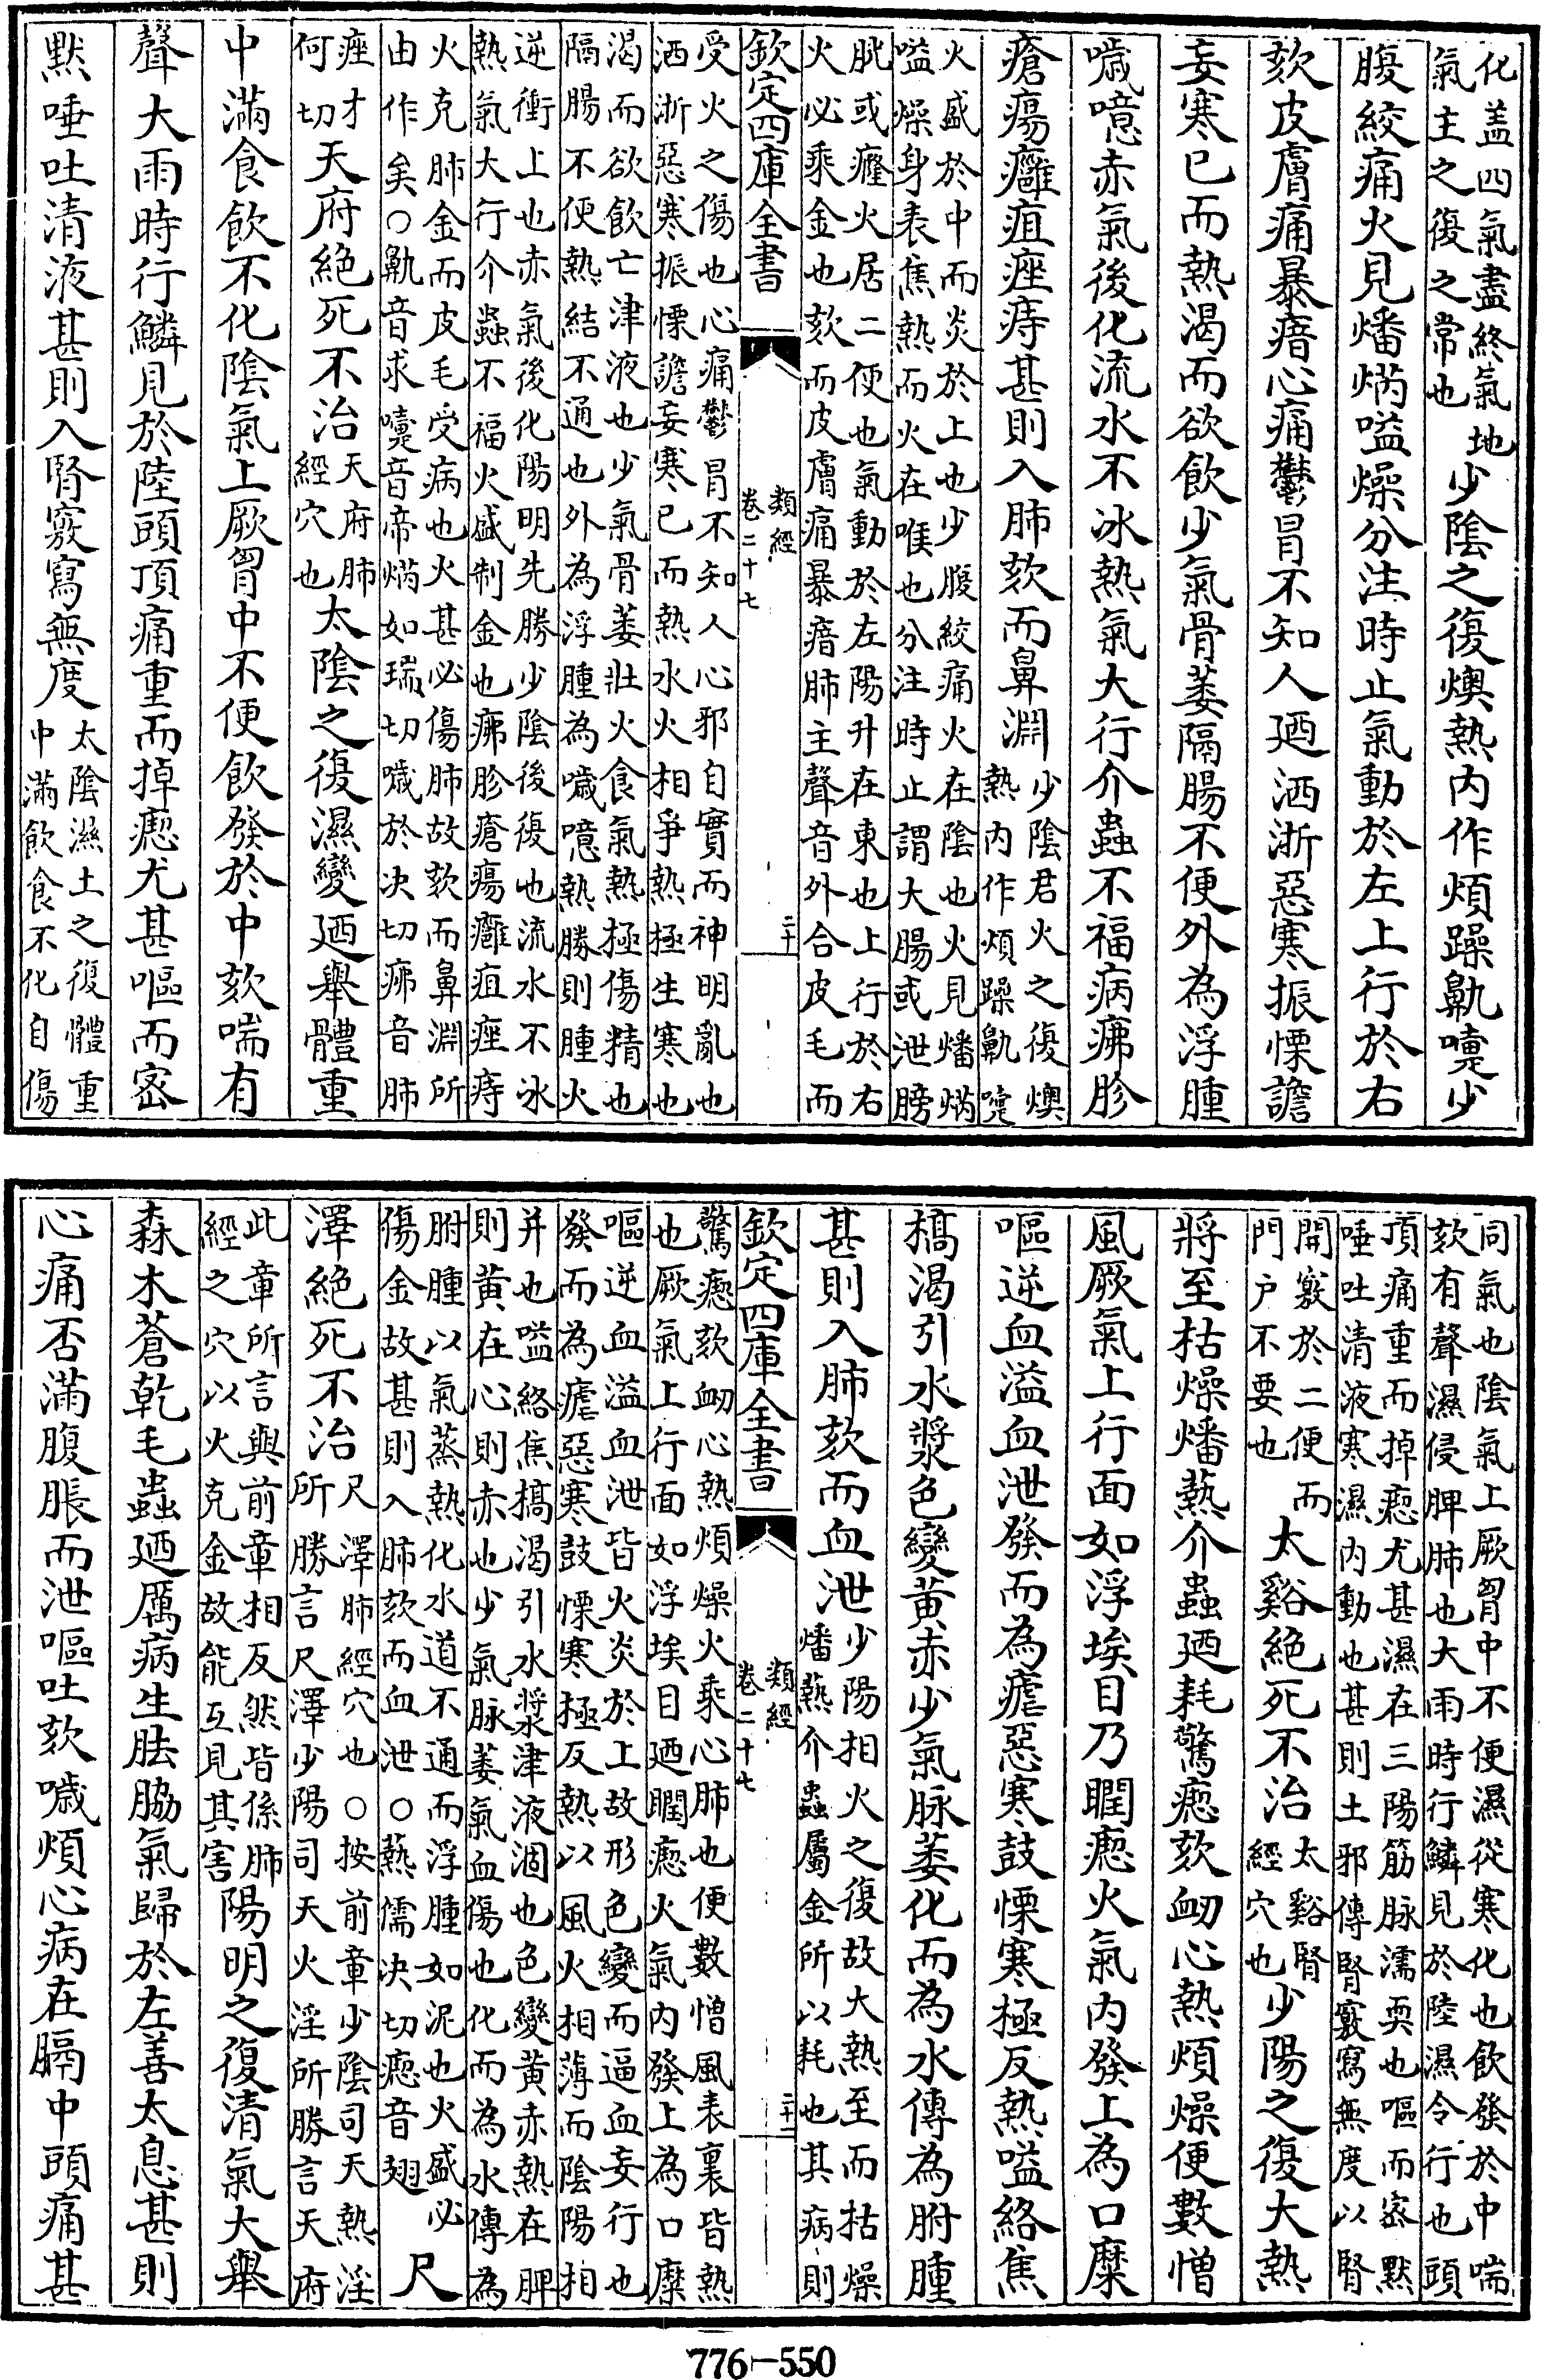 化蓋四氣盡終氣地
氣主之復之常也
少陰之復燠熱内作煩躁鼽嚏少
腹絞痛火見燔焫嗌燥分注時止氣動於左上行於右
欬皮膚痛暴瘖心痛鬱冒不知人廼洒淅惡寒振慄譫
妄寒已而熱渴而欲飲少氣骨萎隔腸不便外為浮腫
噦噫赤氣後化流水不冰熱氣大行介蟲不福病疿胗
瘡瘍癰疽痤痔甚則入肺欬而鼻淵
少陰君火之復燠
熱内作煩躁鼽嚏
火盛於中而炎於上也少腹絞痛火在陰也火見燔焫
嗌燥身表焦熱而火在喉也分注時止謂大腸或泄膀
胱或癃火居二便也氣動於左陽升在東也上行於右
火必乘金也欬而皮膚痛暴瘖肺主聲音外合皮毛而
欽定四庫全書
類經
卷二十七
二十
受火之傷也心痛鬱冒不知人心邪自實而神明亂也
洒淅惡寒振慄譫妄寒已而熱水火相爭熱極生寒也
渴而欲飲亡津液也少氣骨萎壯火食氣熱極傷精也
隔腸不便熱結不通也外為浮腫為噦噫熱勝則腫火
逆衝上也赤氣後化陽明先勝少陰後復也流水不冰
熱氣大行介蟲不福火盛制金也疿胗瘡瘍癰疽痤痔
火克肺金而皮毛受病也火甚必傷肺故欬而鼻淵所
由作矣○鼽音求嚏音帝焫如瑞切噦於决切疿音肺
痤才
何切
天府絶死不治
天府肺
經穴也
太陰之復濕變廼舉體重
中滿食飲不化陰氣上厥胷中不便飲發於中欬喘有
聲大雨時行鱗見於陸頭頂痛重而掉瘛尤甚嘔而密
默唾吐清液甚則入腎竅寫無度
太陰濕土之復體重
中滿飲食不化自傷
同氣也陰氣上厥胷中不便濕從寒化也飲發於中喘
欬有聲濕侵脾肺也大雨時行鱗見於陸濕令行也頭
頂痛重而掉瘛尤甚濕在三陽筋脉濡耎也嘔而密默
唾吐清液寒濕内動也甚則土邪傳腎竅寫無度以腎
開竅於二便而
門户不要也
太谿絶死不治
太谿腎
經穴也
少陽之復大熱
將至枯燥燔熱介蟲廼耗驚瘛欬衂心熱煩燥便數憎
風厥氣上行面如浮埃目乃瞤瘛火氣内發上為口糜
嘔逆血溢血泄發而為瘧惡寒鼓慄寒極反熱嗌絡焦
槁渴引水漿色變黄赤少氣脉萎化而為水傳為胕腫
甚則入肺欬而血泄
少陽相火之復故大熱至而枯燥
燔熱介蟲屬金所以耗也其病則
欽定四庫全書
類經
卷二十七
二十一
驚瘛欬衂心熱煩燥火乘心肺也便數憎風表裏皆熱
也厥氣上行面如浮埃目廼瞤瘛火氣内發上為口糜
嘔逆血溢血泄皆火炎於上故形色變而逼血妄行也
發而為瘧惡寒鼓慄寒極反熱以風火相薄而陰陽相
并也嗌絡焦槁渴引水漿津液涸也色變黄赤熱在脾
則黄在心則赤也少氣脉萎氣血傷也化而為水傳為
胕腫以氣蒸熱化水道不通而浮腫如泥也火盛必
傷金故甚則入肺欬而血泄○熱儒决切瘛音翅
尺
澤絶死不治
尺澤肺經穴也○按前章少陰司天熱淫
所勝言尺澤少陽司天火淫所勝言天府
此章所言與前章相反然皆係肺
經之穴以火克金故能互見其害
陽明之復清氣大舉
森木蒼乾毛蟲廼厲病生胠脇氣歸於左善太息甚則
心痛否滿腹脹而泄嘔吐欬噦煩心病在膈中頭痛甚
776-550